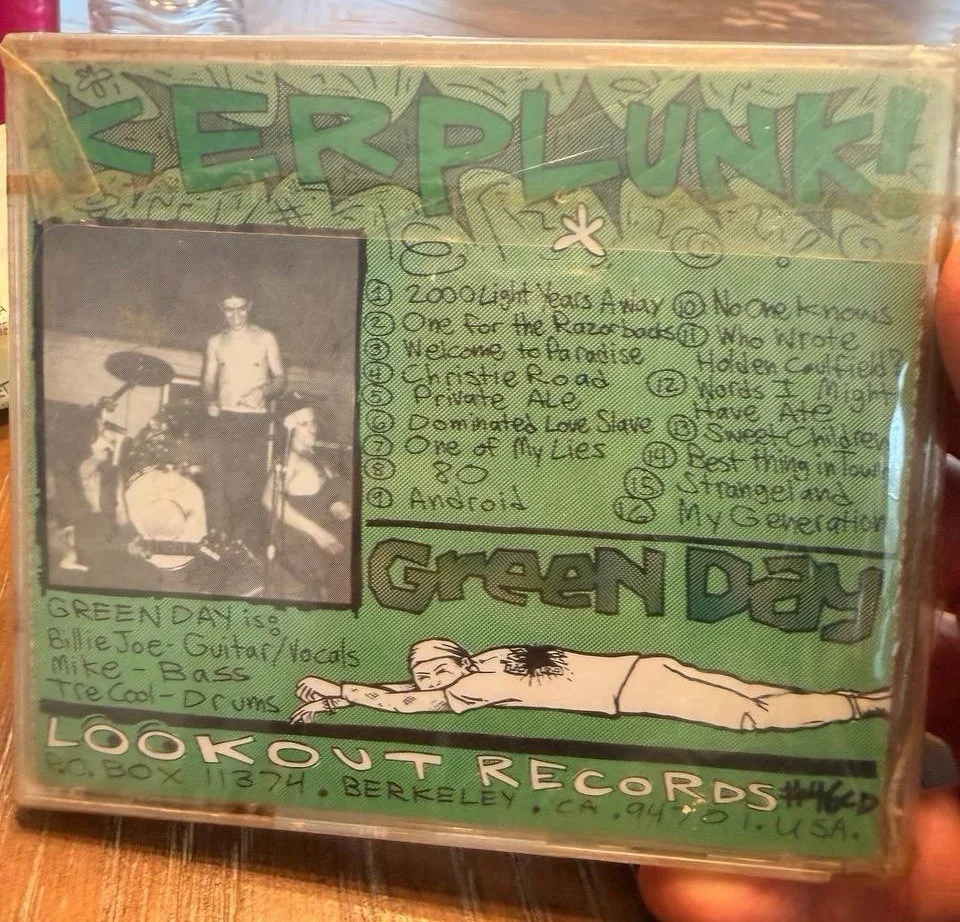 KERPLUNK!
① 2000 Light Years Away
② One for the Razorbacks
③ Welcome to Paradise
④ Christie Road
⑤ Private Ale
⑥ Dominated Love Slave
⑦ One of My Lies
⑧ 80
⑨ Android
⑩ No One Knows
⑪ Who Wrote
Holden Caulfield?
⑫ Words I Might
Have Ate
⑬ Sweet Children
⑭ Best thing in Town
⑮ Strangeland
⑯ My Generation
GREEN DAY
GREEN DAY is:
Billie Joe - Guitar/Vocals
Mike - Bass
Tre Cool - Drums
LOOKOUT RECORDS #46CD
P.O. BOX 11374. BERKELEY. CA. 94701. USA.